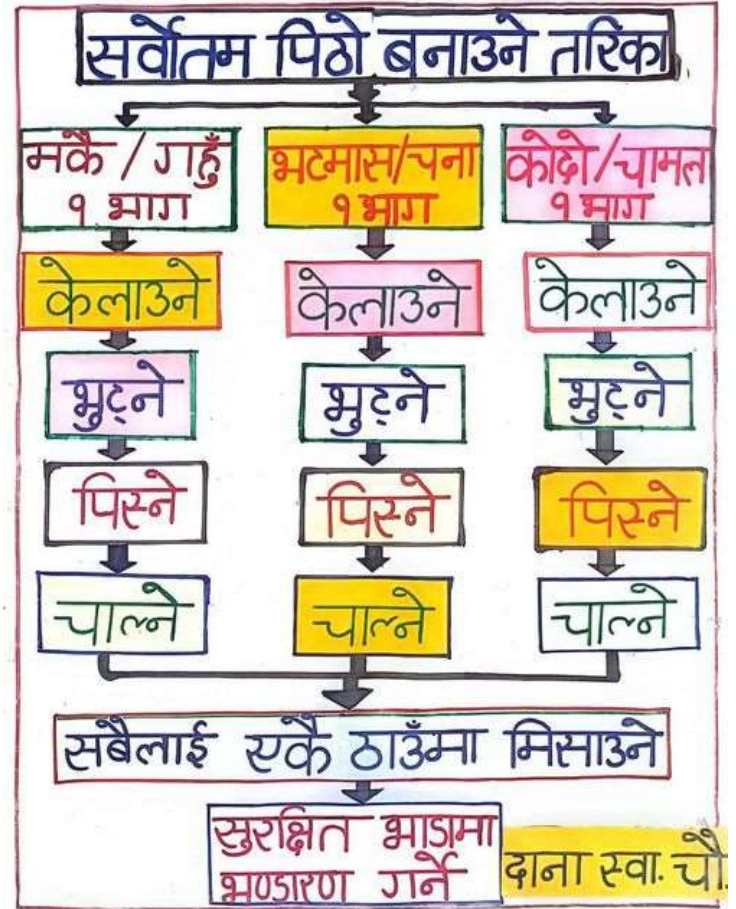 सर्वोतम पिठो बनाउने तरिका
मकै / गहुँ
१ भाग
भटमास/चना
१ भाग
कोदो/चामल
१ भाग
केलाउने
केलाउने
केलाउने
भुट्ने
भुट्ने
भुट्ने
पिस्ने
पिस्ने
पिस्ने
चाल्ने
चाल्ने
चाल्ने
सबैलाई एकै ठाउँमा मिसाउने
सुरक्षित भाडामा
भण्डारण गर्ने
दाना स्वा. चौ.